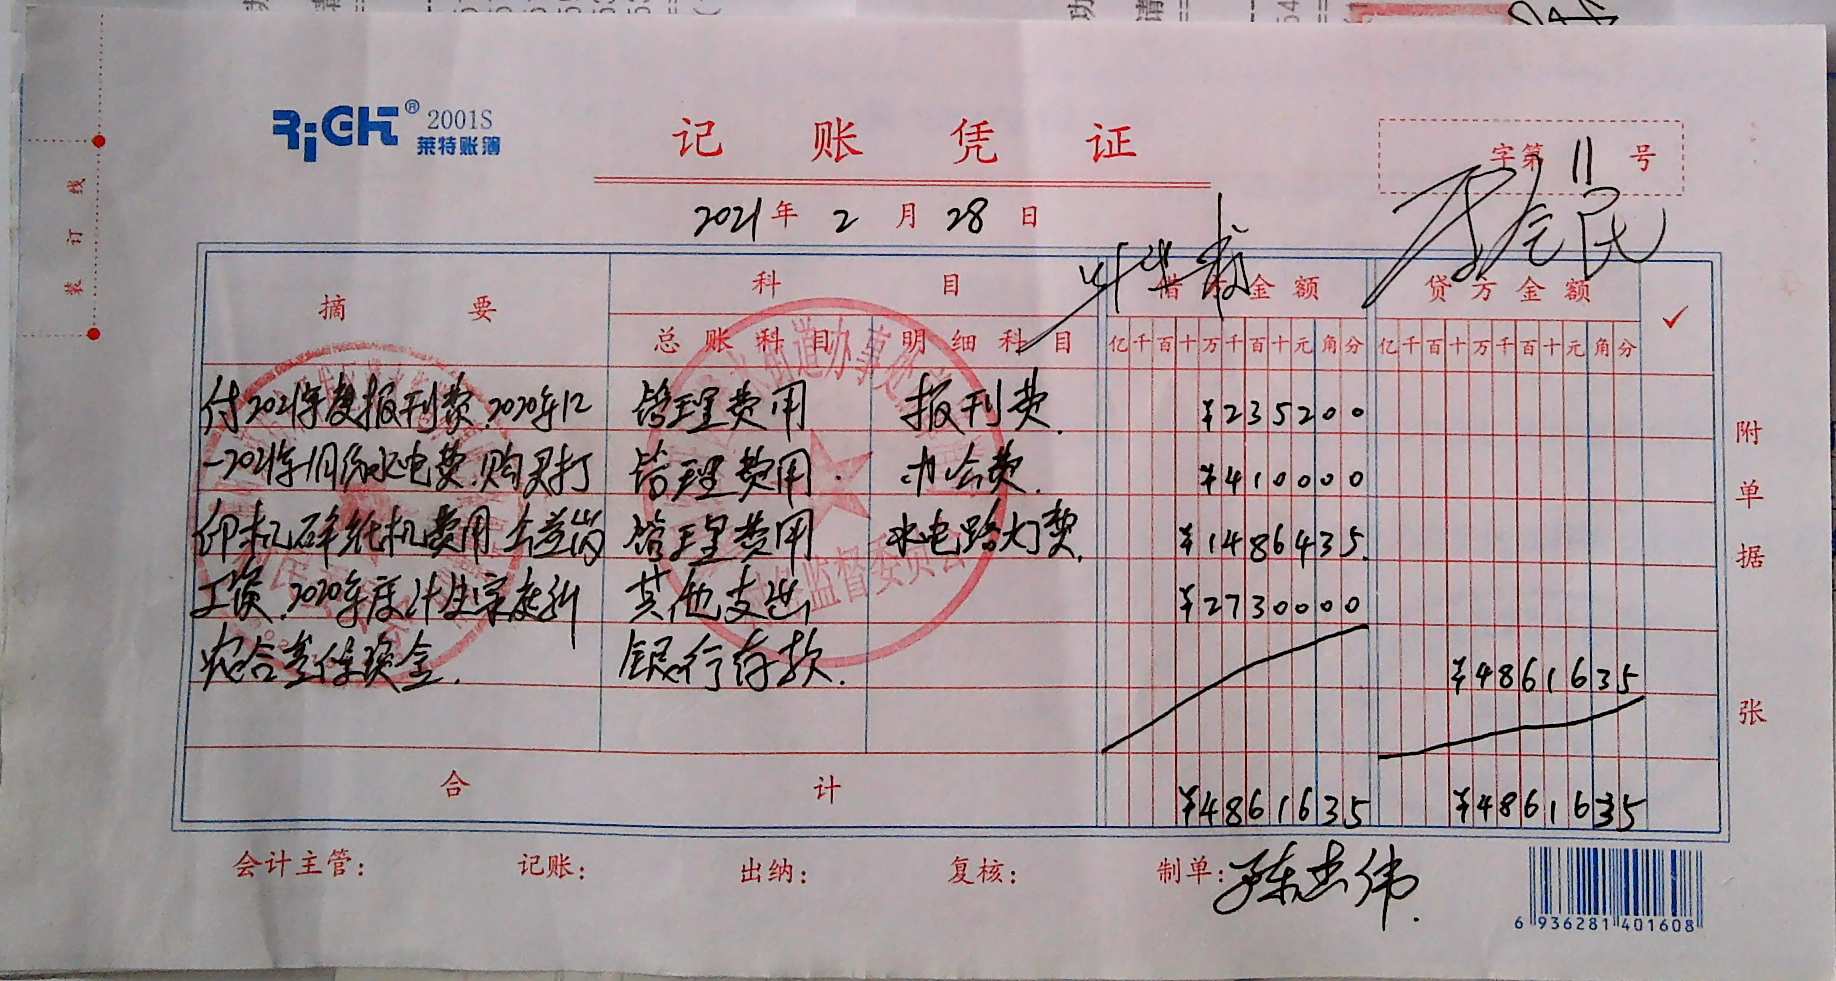 RiGHT® 2001S
莱特账簿
记账凭证
字第 11 号
2021年 2 月 28 日
装订线
摘要 科目 借方金额 贷方金额 ✓
总账科目 明细科目 亿千百十万千百十元角分 亿千百十万千百十元角分
付2021年度报刊费.2020年12 管理费用 报刊费. ¥235200
-2021年1月份水电费.购买打 管理费用. 办公费. ¥410000
印机碎纸机费用 公益岗 管理费用 水电路灯费. ¥1486435.
工资.2020年度计生家庭新 其他支出 ¥2730000
农合参保资金. 银行存款. ¥4861635
合计 ¥4861635 ¥4861635
附单据 张
街道办事处
监督委员会
会计主管: 记账: 出纳: 复核: 制单:
6 936281 401608